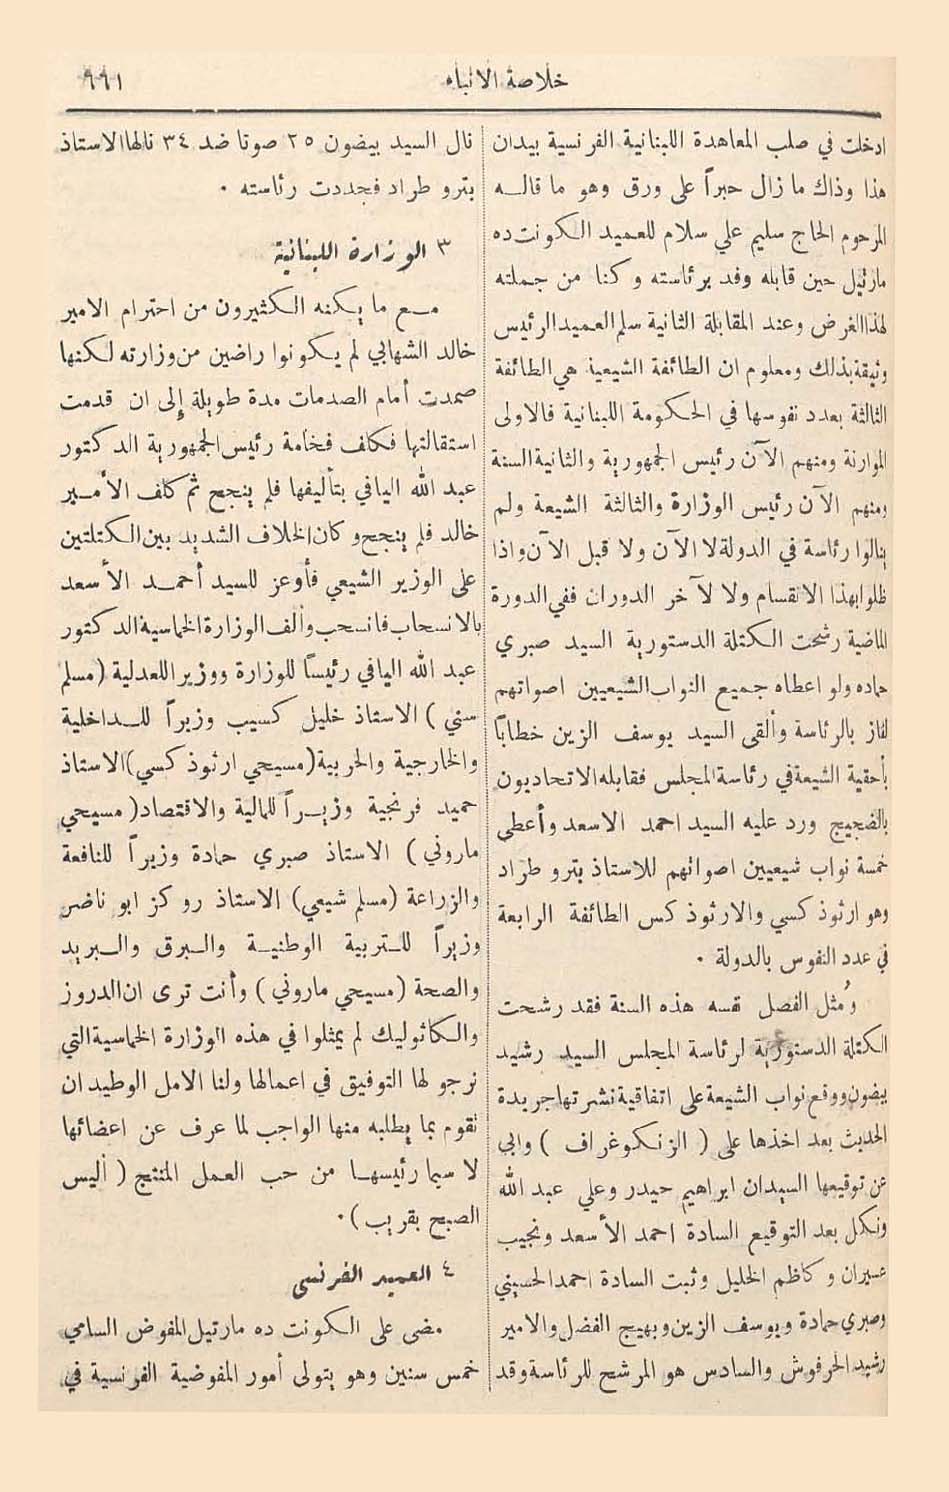 خلاصة الانباء
٩٩١
ادخلت في صلب المعاهدة اللبنانية الفرنسية بيدان
هذا وذاك ما زال حبراً على ورق وهو ما قاله
المرحوم الحاج سليم علي سلام للعميد الكونت ده
مارتيل حين قابله وفد برئاسته وكنا من جملته
لهذا الغرض وعند المقابلة الثانية سلم العميد الرئيس
وثيقة بذلك ومعلوم ان الطائفة الشيعية هي الطائفة
الثالثة بعدد نفوسها في الحكومة اللبنانية فالاولى
الموارنة ومنهم الآن رئيس الجمهورية والثانية السنة
ومنهم الآن رئيس الوزارة والثالثة الشيعة ولم
ينالوا رئاسة في الدولة لا الآن ولا قبل الآن واذا
ظلوا بهذا الانقسام ولا لآخر الدوران ففي الدورة
الماضية رشحت الكتلة الدستورية السيد صبري
حماده ولو اعطاه جميع النواب الشيعيين اصواتهم
لفاز بالرئاسة وألقى السيد يوسف الزين خطاباً
بأحقية الشيعة في رئاسة المجلس فقابله الاتحاديون
بالضجيج ورد عليه السيد احمد الاسعد وأعطى
خمسة نواب شيعيين اصواتهم للاستاذ بترو طراد
وهو ارثوذكسي والارثوذكس الطائفة الرابعة
في عدد النفوس بالدولة .
ومُثل الفصل نفسه هذه السنة فقد رشحت
الكتلة الدستورية لرئاسة المجلس السيد رشيد
بيضون ووقع نواب الشيعة على اتفاقية نشرتها جريدة
الحديث بعد اخذها على ( الزنكوغراف ) وابى
عن توقيعها السيدان ابراهيم حيدر وعلي عبد الله
ونكل بعد التوقيع السادة احمد الأسعد ونجيب
عسيران وكاظم الخليل وثبت السادة احمد الحسيني
وصبري حمادة ويوسف الزين وبهيج الفضل والامير
رشيد الحرفوش والسادس هو المرشح للرئاسة وقد
نال السيد بيضون ٢٥ صوتا ضد ٣٤ نالها الاستاذ
بترو طراد فجددت رئاسته .
٣ الوزارة اللبنانية
مع ما يكنه الكثيرون من احترام الامير
خالد الشهابي لم يكونوا راضين من وزارته لكنها
صمدت أمام الصدمات مدة طويلة إلى ان قدمت
استقالتها فكلف فخامة رئيس الجمهورية الدكتور
عبد الله اليافي بتأليفها فلم ينجح ثم كلف الأمير
خالد فلم ينجح وكان الخلاف الشديد بين الكتلتين
على الوزير الشيعي فأوعز للسيد أحمد الأسعد
بالانسحاب فانسحب وألف الوزارة الخماسية الدكتور
عبد الله اليافي رئيساً للوزارة ووزير اللعدلية (مسلم
سني ) الاستاذ خليل كسيب وزيراً للداخلية
والخارجية والحربية (مسيحي ارثوذكسي) الاستاذ
حميد فرنجية وزيراً للمالية والاقتصاد ( مسيحي
ماروني ) الاستاذ صبري حمادة وزيراً للنافعة
والزراعة (مسلم شيعي) الاستاذ روكز ابو ناضر
وزيراً للتربية الوطنية والبرق والبريد
والصحة (مسيحي ماروني ) وأنت ترى ان الدروز
والكاثوليك لم يمثلوا في هذه الوزارة الخماسية التي
نرجو لها التوفيق في اعمالها ولنا الامل الوطيد ان
تقوم بما يطلبه منها الواجب لما عرف عن اعضائها
لا سيما رئيسها من حب العمل المنتج ( أليس
الصبح بقريب ) .
٤ العميد الفرنسي
مضى على الكونت ده مارتيل المفوض السامي
خمس سنين وهو يتولى أمور المفوضية الفرنسية في